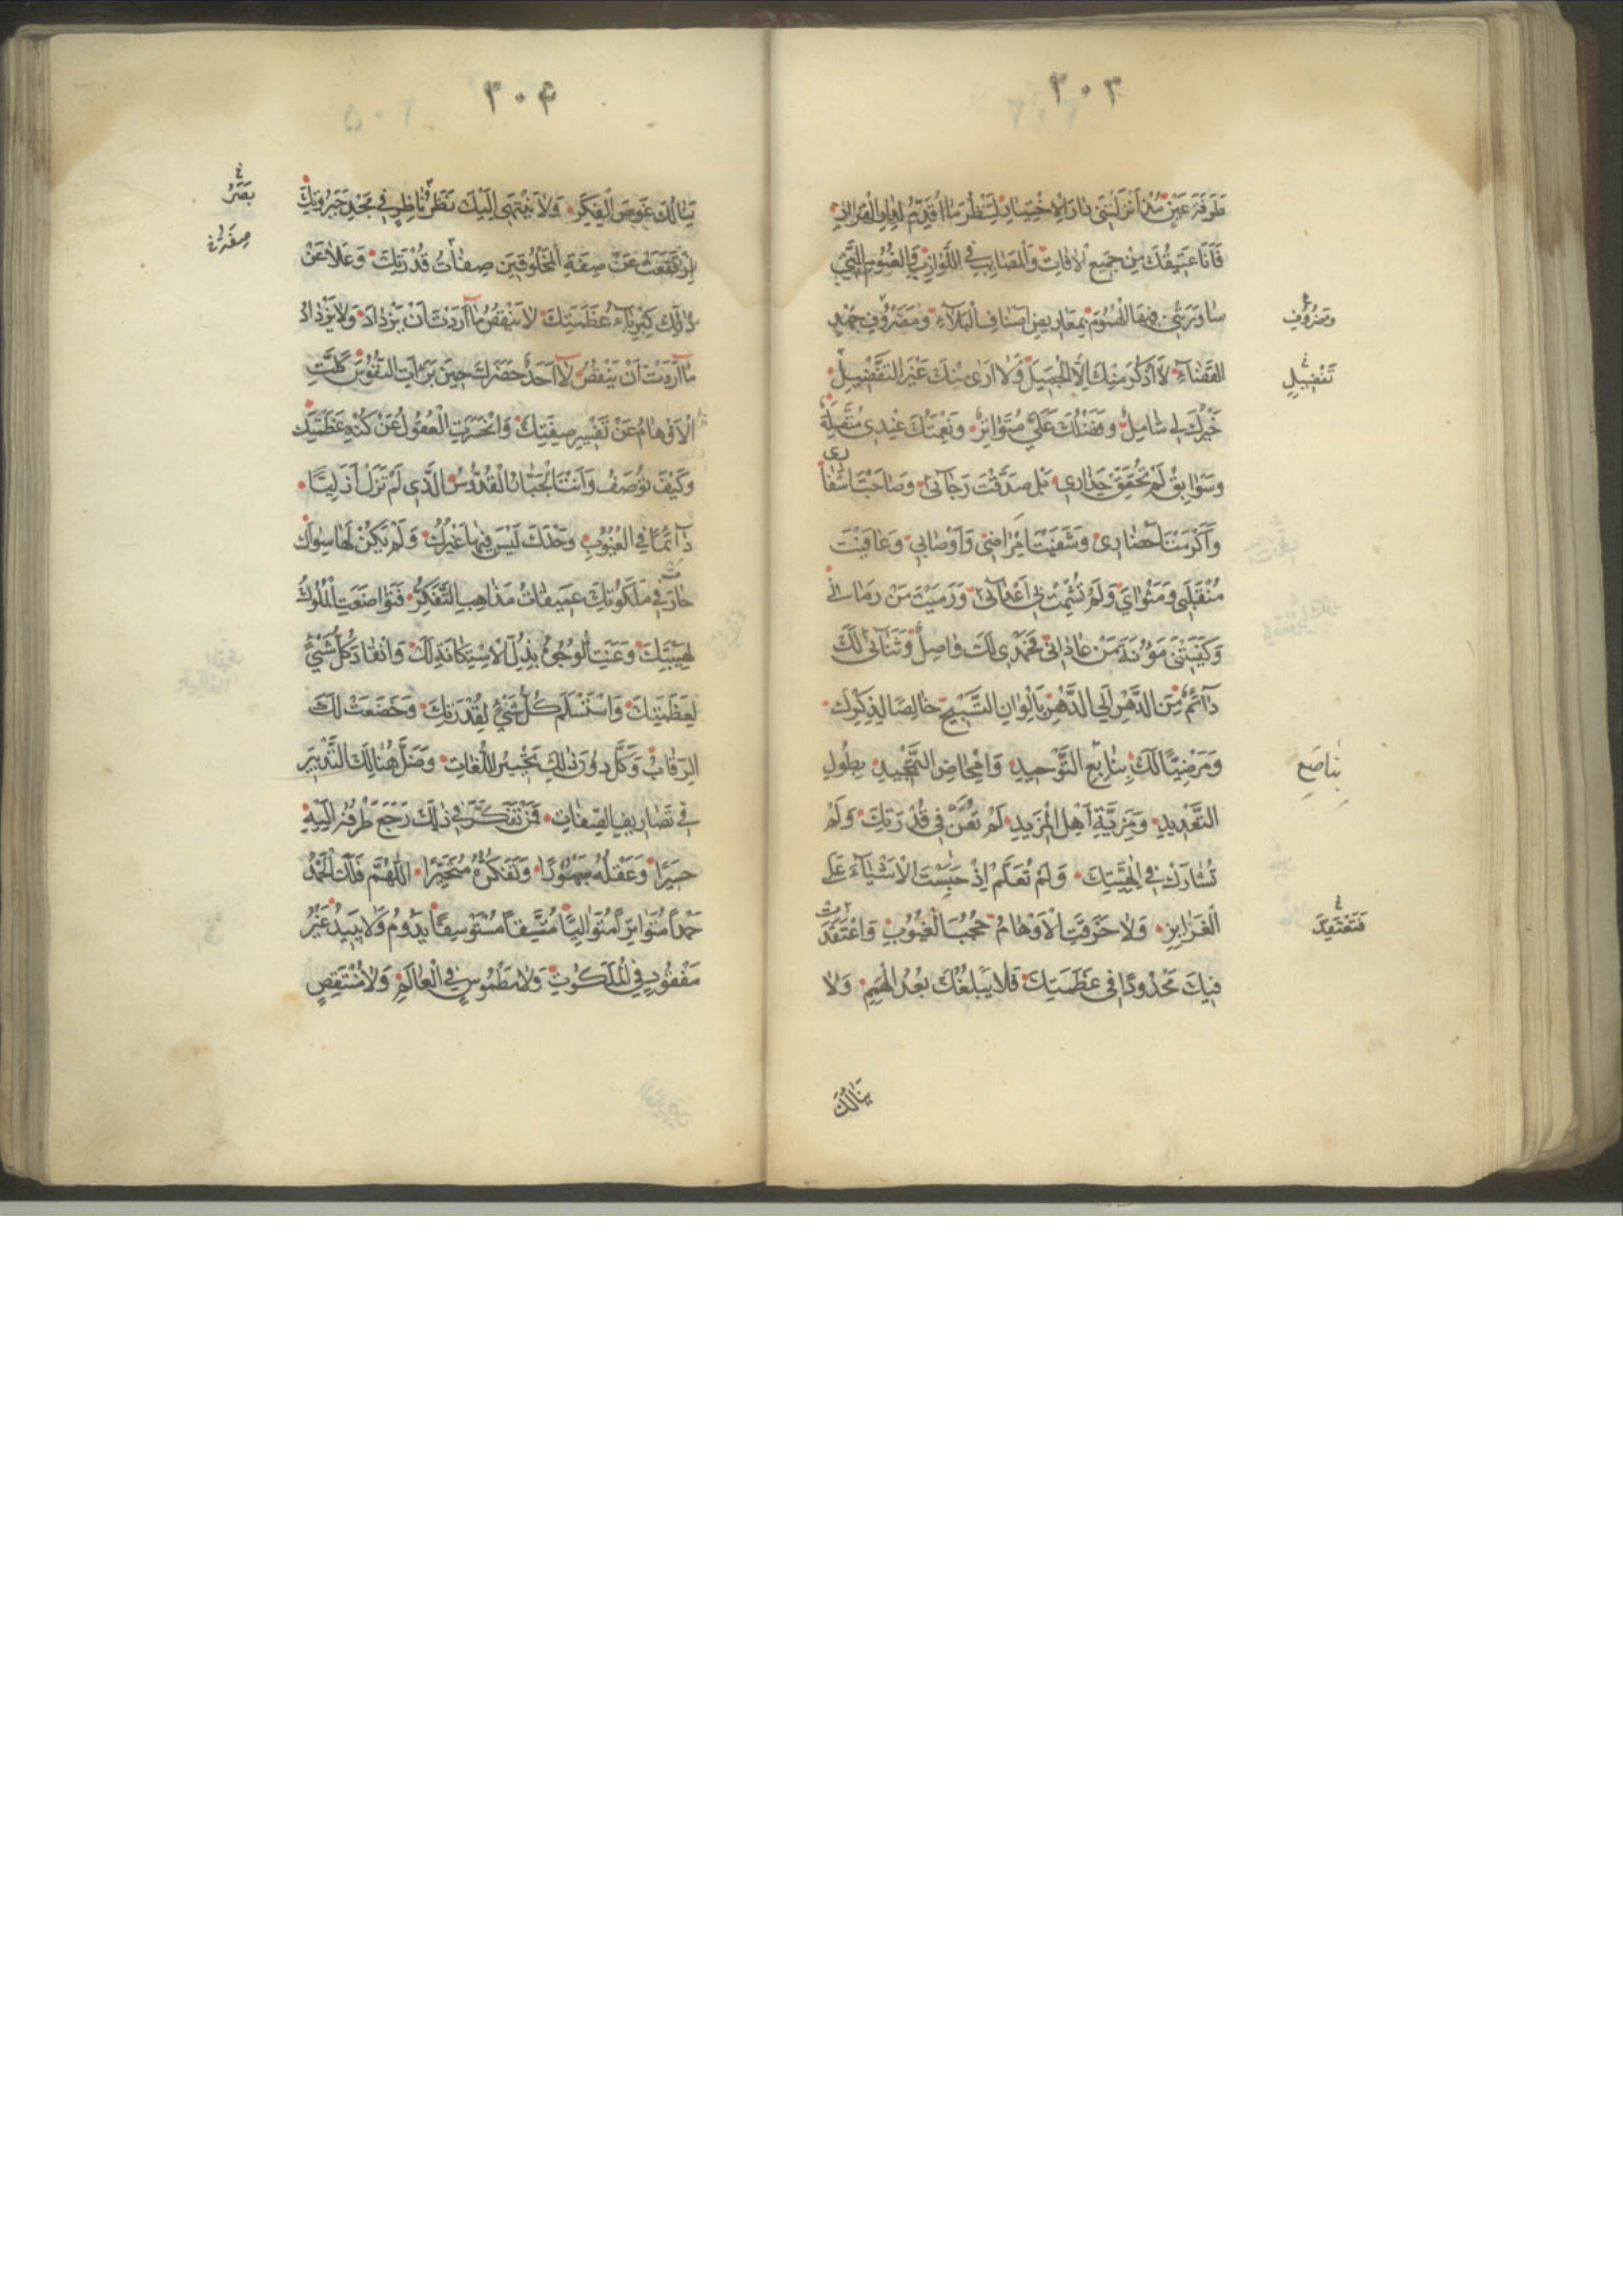 ٣٠٣
طَرْفَةَ عَيْنٍ مُنْذُ أَنْزَلْتَنِي دَارَ الِاخْتِبَارِ لِتَنْظُرَ مَا أُقَدِّمُ لِدَارِ الْقَرَارِ
فَأَنَا عَتِيقُكَ مِنْ جَمِيعِ الْآفَاتِ وَالْمَصَائِبِ فِي اللَّوَازِبِ وَالْغُمُومِ الَّتِي
سَاوَرَتْنِي فِيهَا الْهُمُومُ بِمَعَارِيضِ أَصْنَافِ الْبَلَاءِ وَمَصْرُوفِ جُهْدِ
وَصُرُوفِ
الْقَضَاءِ لَا أَذْكُرُ مِنْكَ إِلَّا الْجَمِيلَ وَلَا أَرَى مِنْكَ غَيْرَ التَّفْضِيلِ
تَفْضِيلٍ
خَيْرُكَ لِي شَامِلٌ وَفَضْلُكَ عَلَيَّ مُتَوَاتِرٌ وَنِعْمَتُكَ عِنْدِي مُتَّصِلَةٌ
وَسَوَابِقُ لَمْ تُحَقِّقْ حِذَارِي بَلْ صَدَّقْتَ رَجَائِي وَصَاحَبْتَ أَسْفَارِي
وَأَكْرَمْتَ أَحْضَارِي وَشَفَيْتَ أَمْرَاضِي وَأَوْصَابِي وَعَافَيْتَ
مُنْقَلَبِي وَمَثْوَايَ وَلَمْ تُشْمِتْ بِي أَعْدَائِي وَرَمَيْتَ مَنْ رَمَانِي
وَكَفَيْتَنِي مَؤُنَةَ مَنْ عَادَانِي فَحَمْدِي لَكَ وَاصِلٌ وَثَنَائِي لَكَ
دَائِمٌ مِنَ الدَّهْرِ إِلَى الدَّهْرِ بِأَلْوَانِ التَّسْبِيحِ خَالِصًا لِذِكْرِكَ
وَمَرْضِيًّا لَكَ بِيَنَابِيعِ التَّوْحِيدِ وَإِمْحَاضِ التَّمْجِيدِ بِطُولِ
بِنَاصِعِ
التَّعْدِيدِ وَمَزِيَّةِ أَهْلِ الْمَزِيدِ لَمْ تُعَنْ فِي قُدْرَتِكَ وَلَمْ
تُشَارَكْ فِي إِلٰهِيَّتِكَ وَلَمْ تُعْلَمْ إِذْ حَبَسْتَ الْأَشْيَاءَ عَلَى
الْغَرَائِزِ وَلَا خَرَقَتِ الْأَوْهَامُ حُجُبَ الْغُيُوبِ وَاعْتَقَدَتْ
فَتَعْتَقِدَ
فِيكَ مَحْدُودًا فِي عَظَمَتِكَ فَلَا يَبْلُغُكَ بُعْدُ الْهِمَمِ وَلَا
يَنَالُكَ
٣٠٤
يَنَالُكَ غَوْصُ الْفِكَرِ وَلَا يَنْتَهِي إِلَيْكَ نَظَرُ نَاظِرٍ فِي مَجْدِ جَبَرُوتِكَ
بَصَرُ
ارْتَفَعَتْ عَنْ صِفَةِ الْمَخْلُوقِينَ صِفَاتُ قُدْرَتِكَ وَعَلَا عَنْ
ذٰلِكَ كِبْرِيَاءُ عَظَمَتِكَ لَا يَنْقُصُ مَا أَرَدْتَ أَنْ يَزْدَادَ وَلَا يَزْدَادُ
مَا أَرَدْتَ أَنْ يَنْقُصَ لَا أَحَدٌ حَضَرَكَ حِينَ بَرَأْتَ النُّفُوسَ كَلَّتِ
الْأَوْهَامُ عَنْ تَفْسِيرِ صِفَتِكَ وَانْحَسَرَتِ الْعُقُولُ عَنْ كُنْهِ عَظَمَتِكَ
وَكَيْفَ تُوصَفُ وَأَنْتَ الْجَبَّارُ الْقُدُّوسُ الَّذِي لَمْ تَزَلْ أَزَلِيًّا
دَائِمًا فِي الْغُيُوبِ وَحْدَكَ لَيْسَ فِيهَا غَيْرُكَ وَلَمْ يَكُنْ لَهَا سِوَاكَ
حَارَتْ فِي مَلَكُوتِكَ عَمِيقَاتُ مَذَاهِبِ التَّفَكُّرِ فَتَوَاضَعَتِ الْمُلُوكُ
لِهَيْبَتِكَ وَعَنَتِ الْوُجُوهُ بِذُلِّ الْاِسْتِكَانَةِ لَكَ وَانْقَادَ كُلُّ شَيْءٍ
لِعَظَمَتِكَ وَاسْتَسْلَمَ كُلُّ شَيْءٍ لِقُدْرَتِكَ وَخَضَعَتْ لَكَ
الرِّقَابُ وَكَلَّ دُونَ ذٰلِكَ تَحْبِيرُ اللُّغَاتِ وَضَلَّ هُنَالِكَ التَّدْبِيرُ
فِي تَصَارِيفِ الصِّفَاتِ فَمَنْ تَفَكَّرَ فِي ذٰلِكَ رَجَعَ طَرْفُهُ إِلَيْهِ
حَسِيرًا وَعَقْلُهُ مَبْهُوتًا وَتَفَكُّرُهُ مُتَحَيِّرًا اللّٰهُمَّ فَلَكَ الْحَمْدُ
حَمْدًا مُتَوَاتِرًا مُتَوَالِيًا مُتَّسِقًا مُسْتَوْسِقًا يَدُومُ وَلَا يَبِيدُ غَيْرَ
مَفْقُودٍ فِي الْمَلَكُوتِ وَلَا مَطْمُوسٍ فِي الْعَالَمِ وَلَا مُنْتَقِصٍ